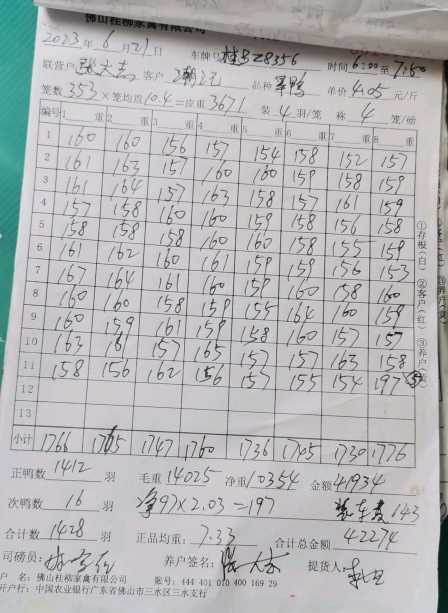 佛山桂柳家禽有限公司
2023年6月21日 车牌号 Z8356 时间6:00至7:50
联营户 客户 品种 单价4.05元/斤
笼数353×笼均重10.4=皮重3671 装4羽/笼 称4笼/磅
编号 1重 2重 3重 4重 5重 6重 7重 8重
1 160 160 156 157 154 158 152 157
2 161 163 157 160 160 159 158 159
3 161 164 157 163 158 157 161 159
4 157 158 160 160 159 158 156 158
5 158 158 158 160 160 158 155 159
6 161 162 160 161 159 159 156 153
7 167 164 161 160 159 160 158 160
8 160 160 158 159 155 164 160 159
9 160 159 161 159 158 160 157 157
10 163 161 157 165 157 157 163 158
11 158 156 162 156 157 155 154 197
12
13
小计 1766 1765 1747 1760 1736 1745 1730 1776
正鸭数1412羽 毛重14025 净重10354 金额41934
次鸭数16羽 净97×2.03=197 装车费143
合计数1428羽 正品均重:7.33 合计总金额42274
司磅员: 养户签名: 提货人
户 名:佛山桂柳家禽有限公司 账号:444 401 010 400 169 29
开户行:中国农业银行广东省佛山市三水区三水支行
①存根(白) ②客户(红) ③养户(黄)